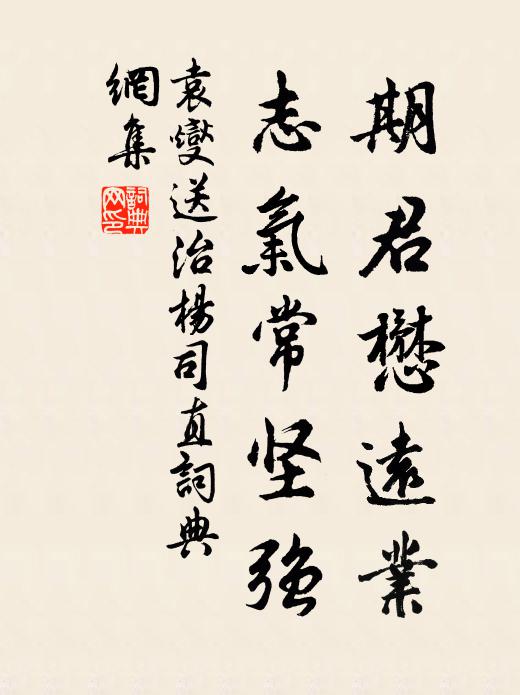 期君懋遠業
志氣常坚強
袁燮送治楊司直詞典
網集
詞典网印